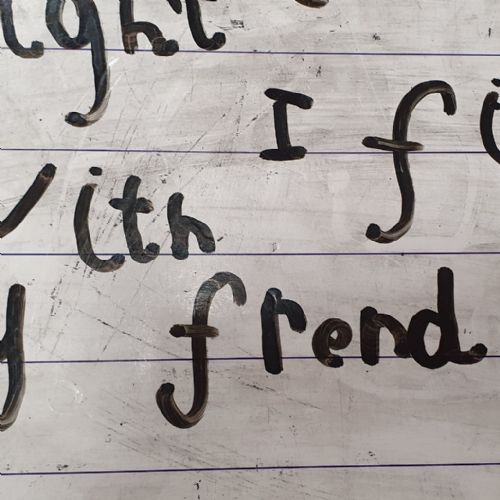 ight
I fi
with
y frend.